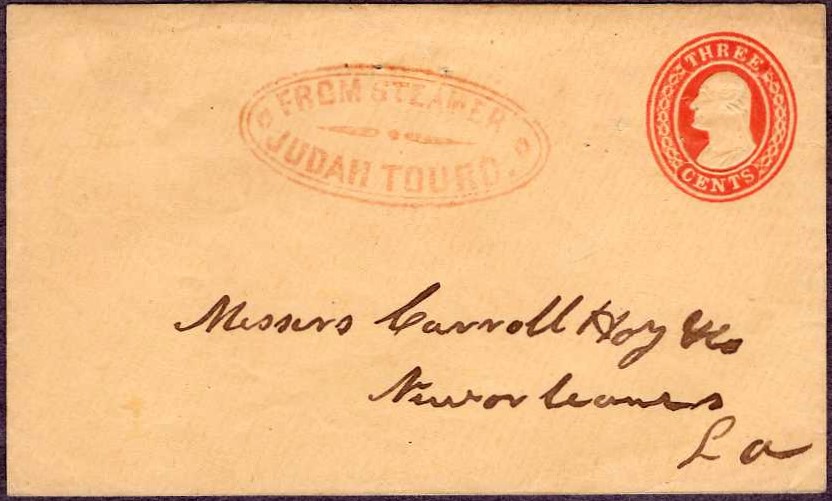 FROM STEAMER
JUDAH TOURO.
THREE
CENTS
Messers Carroll Hoy & Co
Neworleans
La